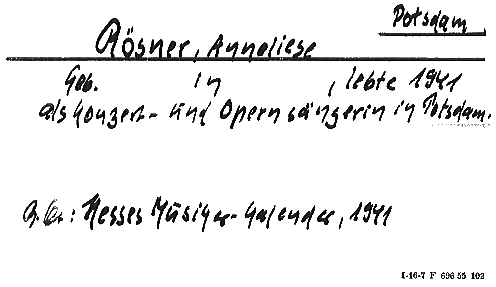 Potsdam
Rösner, Anneliese
Geb. in , lebte 1941
als Konzert- und Opernsängerin in Potsdam.
Hesses Musiker-Kalender, 1941
I-16-7 F 696 55 102